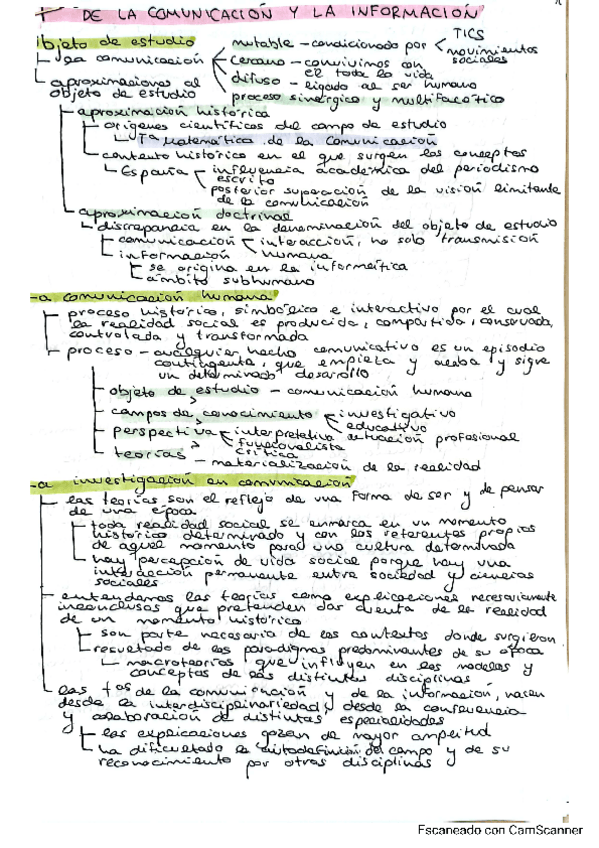 Tª DE LA COMUNICACIÓN Y LA INFORMACIÓN
Objeto de estudio
la comunicación
mutable - condicionado por
TICS
movimientos sociales
cercano - convivimos con él toda la vida
difuso - ligado al ser humano
proceso sinérgico y multifacético
aproximaciones al
objeto de estudio
aproximación histórica
orígenes científicos del campo de estudio
Tª Matemática de la Comunicación
contexto histórico en el que surgen los conceptos
España
influencia académica del periodismo
escrito
posterior superación de la visión limitante
de la comunicación
aproximación doctrinal
discrepancia en la denominación del objeto de estudio
comunicación
interacción, no solo transmisión
humana
información
se origina en la informática
ámbito subhumano
-a comunicación humana
proceso histórico, simbólico e interactivo por el cual
la realidad social es producida, compartida, conservada,
controlada y transformada
proceso - cualquier hecho comunicativo es un episodio
contingente, que empieza y acaba y sigue
un determinado desarollo
objeto de estudio - comunicación humana
campos de conocimiento
investigativo
educativo
actuación profesional
perspectiva
interpretativa
funcionalista
crítica
teorías - materialización de la realidad
-a investigación en comunicación
las teorías son el reflejo de una forma de ser y de pensar
de una época
toda realidad social se enmarca en un momento
histórico determinado y con los referentes propios
de aquel momento para una cultura determinada
hay percepción de vida social porque hay una
interacción permanente entre sociedad y ciencias
sociales
entendamos las teorías como explicaciones necesariamente
inconclusas que pretenden dar cuenta de la realidad
de un momento histórico
son parte necesaria de los contextos donde surgieron
resultado de los paradigmas predominantes de su época
macroteorías que influyen en los modelos y
conceptos de las distintas disciplinas
las tªs de la comunicación y de la información, nacen
desde la interdisciplinariedad, desde la confluencia
y colaboración de distintas especialidades
las explicaciones gozan de mayor amplitud
ha dificultado la autodefinición del campo y de su
reconocimiento por otras disciplinas
Escaneado con CamScanner